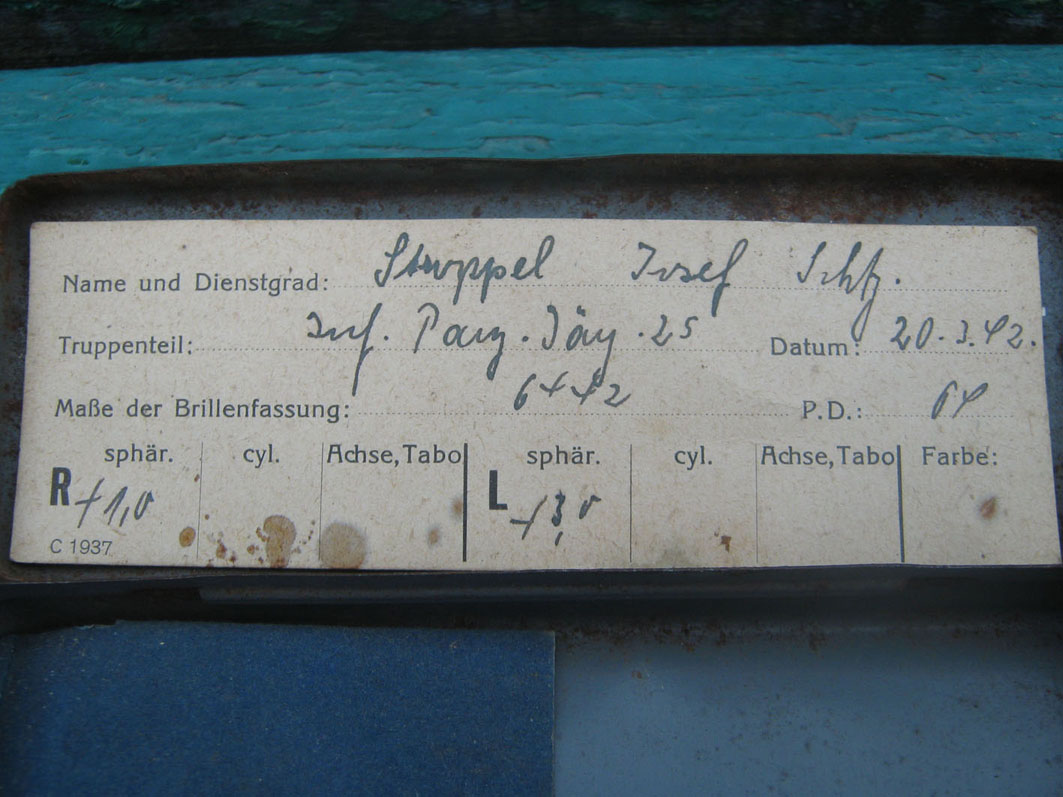 Name und Dienstgrad: Stroppel Josef Schtz.
Truppenteil: Inf. Panz. Jäg. 25 Datum: 20.3.42.
Maße der Brillenfassung: P.D.: 64
sphär. cyl. Achse, Tabo sphär. cyl. Achse, Tabo Farbe:
R +1,0 L +3,0
C 1937